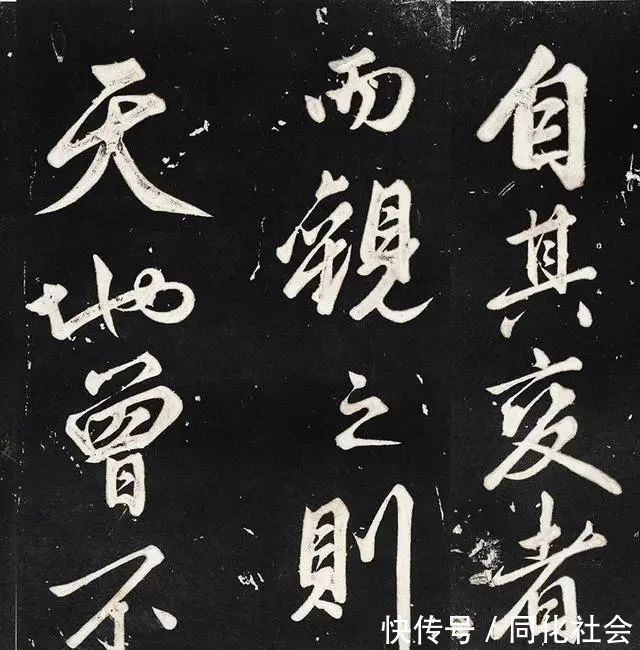 自其变者
而觀之則
天地曾不
快传号 / 同化社会